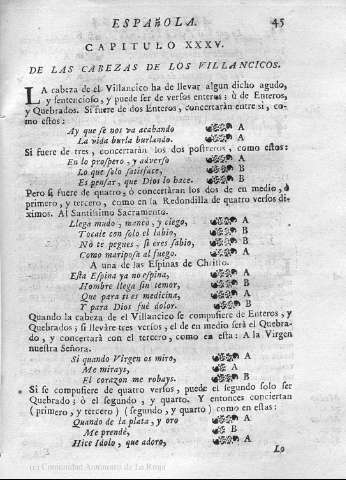 ESPAÑOLA. 45
CAPITULO XXXV.
DE LAS CABEZAS DE LOS VILLANCICOS.
LA cabeza de el Villancico ha de llevar algun dicho agudo,
y sentencioso, y puede ser de versos enteros; ù de Enteros,
y Quebrados. Si fuere de dos Enteros, concertarán entre si, co-
mo estos:
Ay que se nos va acabando A
La vida burla burlando. A
Si fuere de tres, concertarán los dos postreros, como estos:
En lo prospero, y adverso A
Lo que solo satisface, B
Es pensar, que Dios lo hace. B
Pero si fuere de quatro, ò concertarán los dos de en medio, ò
primero, y tercero, como en la Redondilla de quatro versos di-
ximos. Al Santissimo Sacramento.
Llega mudo, manco, y ciego, A
Tocale con solo el labio, B
No te pegues, si eres sabio, B
Como mariposa al fuego. A
A una de las Espinas de Christo.
Esta Espina ya no espina, A
Hombre llega sin temor, B
Que para ti es medicina, A
Y para Dios fué dolor. B
Quando la cabeza de el Villancico se compusiere de Enteros, y
Quebrados; si lleváre tres versos, el de en medio será el Quebra-
do, y concertará con el tercero, como en esta: A la Virgen
nuestra Señora.
Si quando Virgen os miro, A
Me mirays, A
El corazon me robays. B
Si se compusiere de quatro versos, puede el segundo solo ser
Quebrado; ò el segundo, y quarto. Y entonces conciertan
(primero, y tercero) (segundo, y quarto) como en estas:
Quando de la plata, y oro A
Me prendé, B
Hice Idolo, que adoro, A
Lo
(c) Comunidad Autónoma de La Rioja